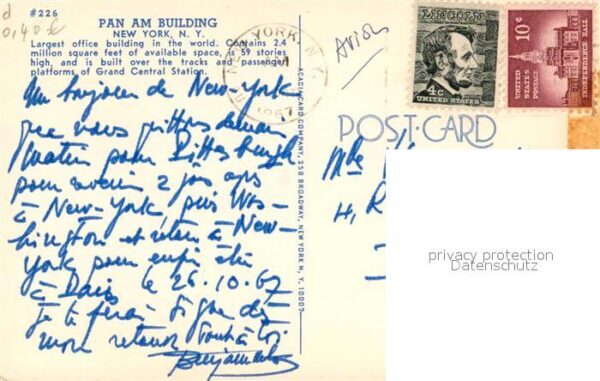 #226
d
0140 €
PAN AM BUILDING
NEW YORK, N. Y.
Largest office building in the world. Contains 2.4
million square feet of available space, is 59 stories
high, and is built over the tracks and passenger
platforms of Grand Central Station.
NEW YORK, N.Y.
1967
Avion
LINCOLN
4c
UNITED STATES
10¢
UNITED STATES POSTAGE
INDEPENDENCE HALL
POST CARD
ACACIA CARD COMPANY, 258 BROADWAY, NEW YORK N. Y. 10007
Un bonjour de New-York
que nous quittons demain
matin pour Pittsburgh
pour revenir 2 jours après
à New-York, puis Was-
hington et retour à New-
York pour enfin être
à Paris le 26.10.67
Je te ferai signe dès
mon retour Tout à toi
Mde
4, R
privacy protection
Datenschutz